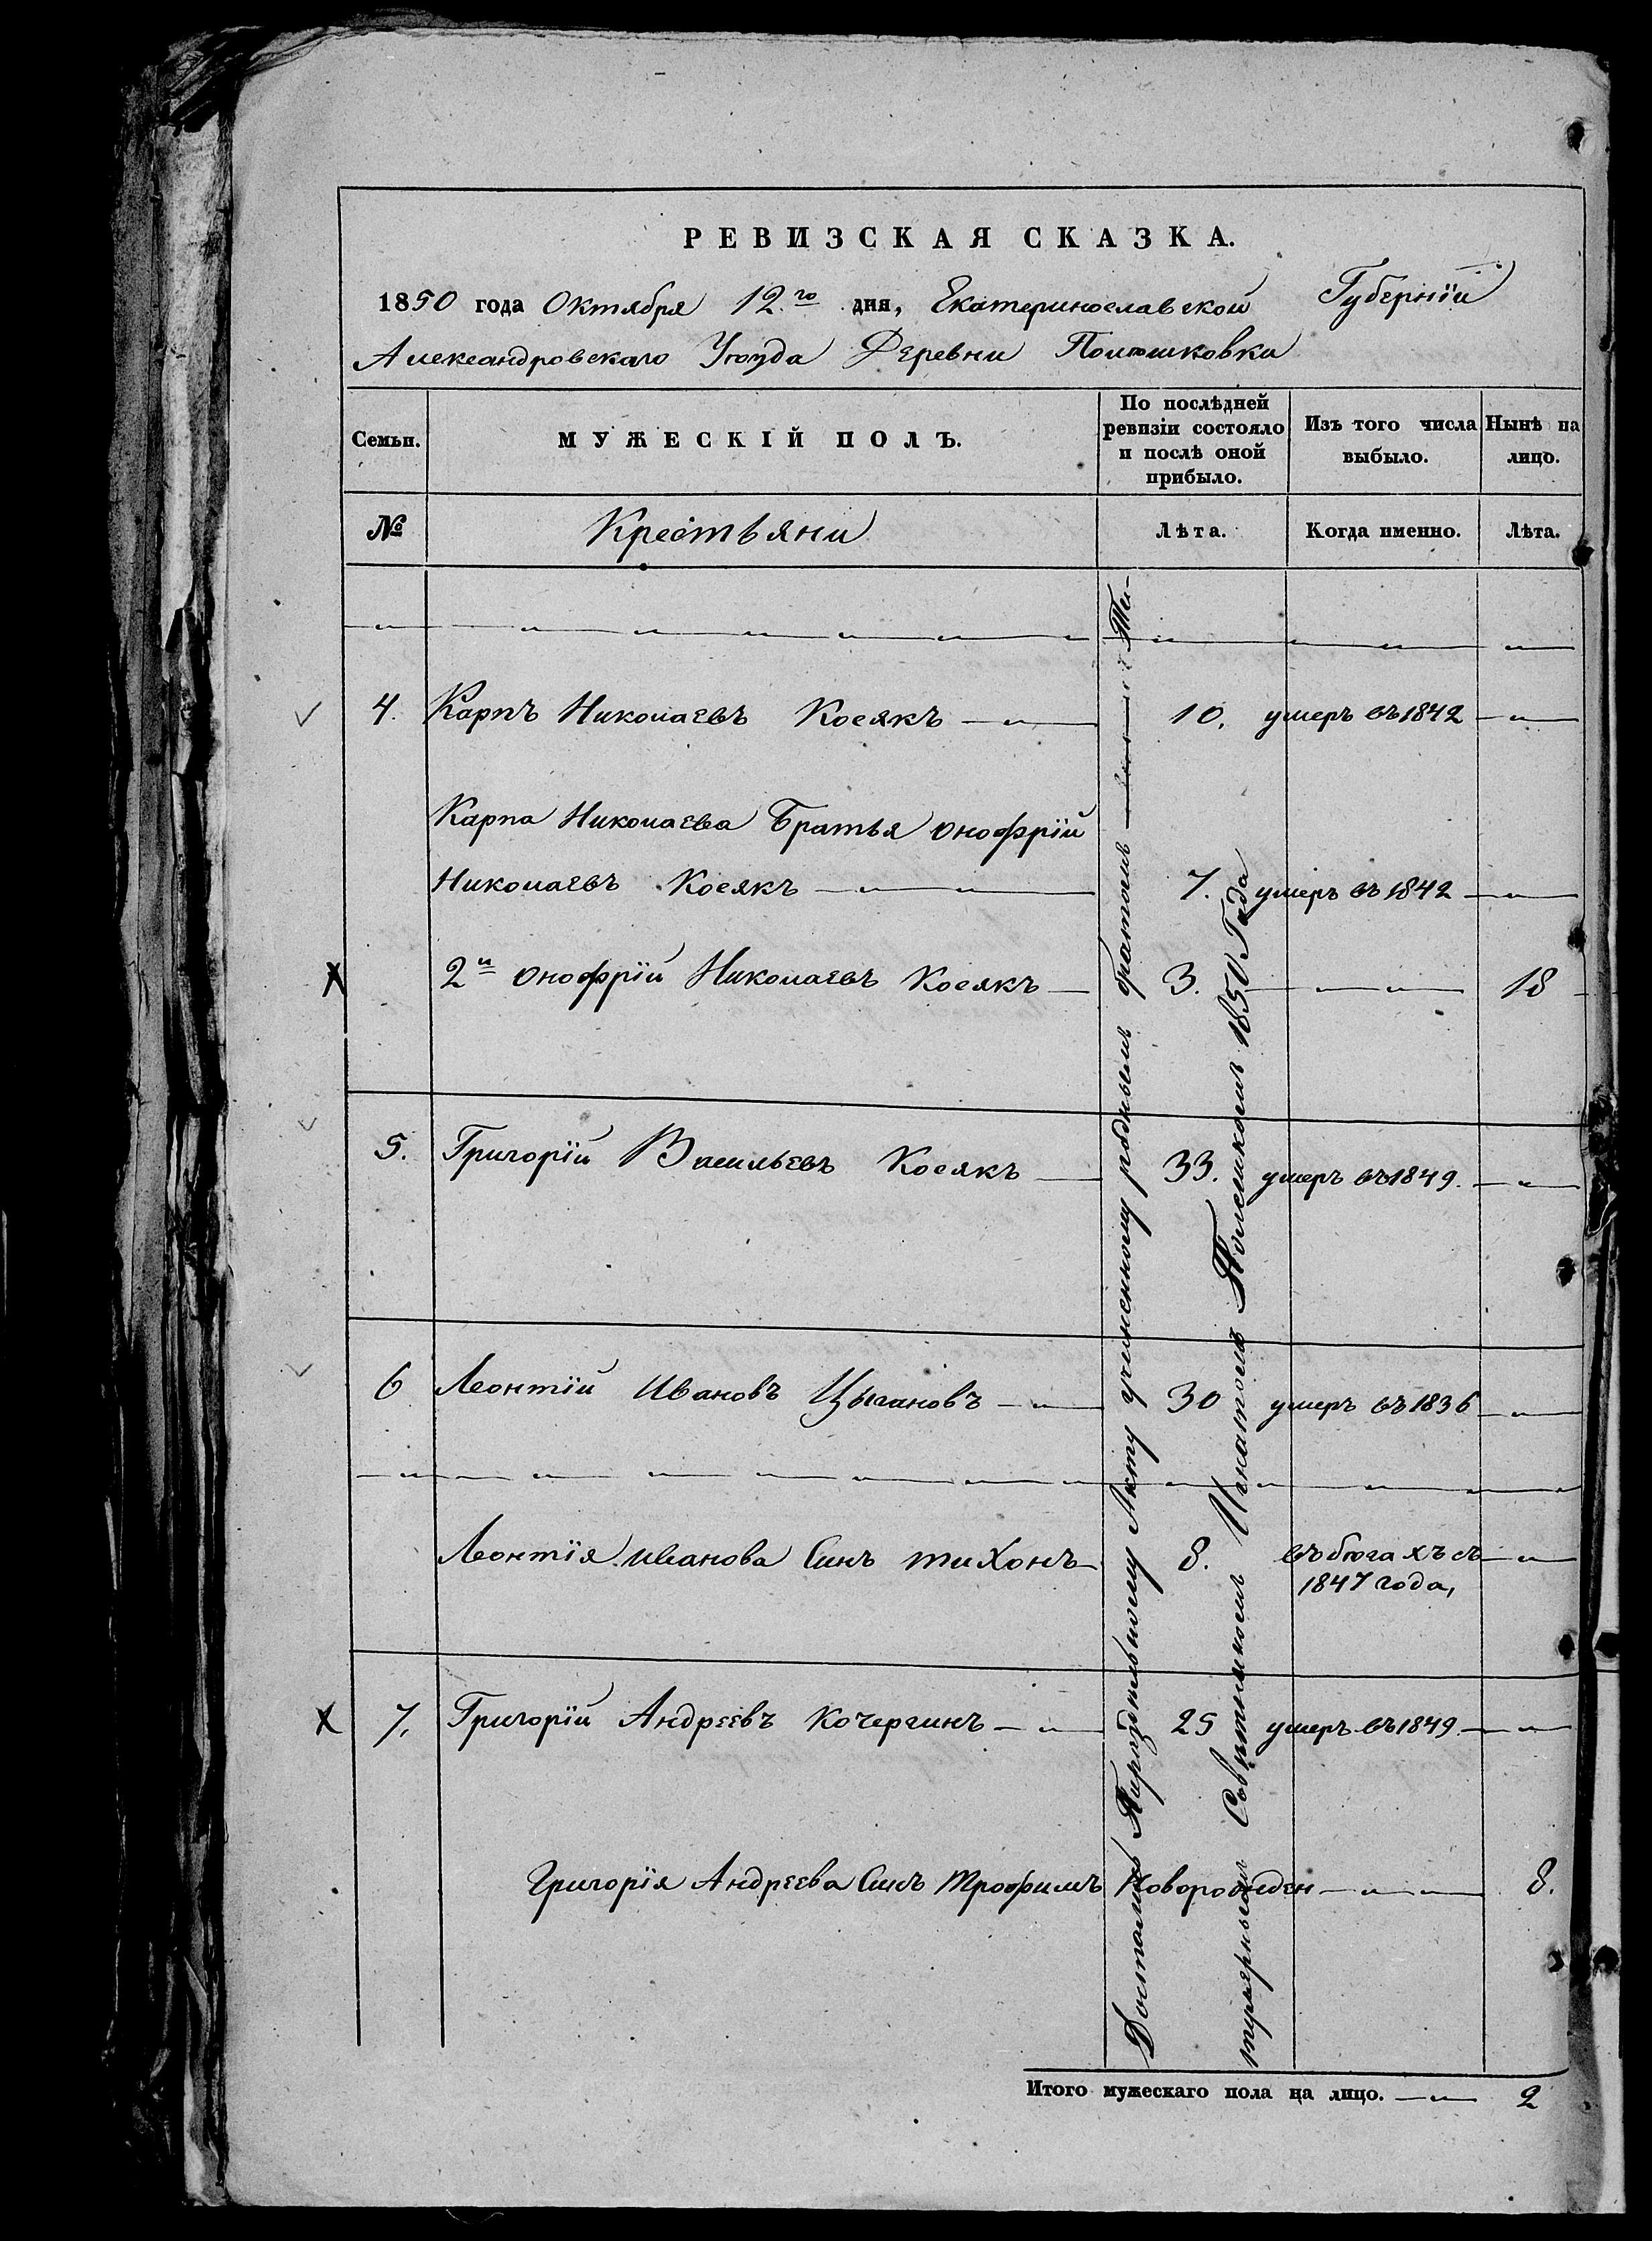 РЕВИЗСКАЯ СКАЗКА.
1850 года Октября 12.го дня, Екатеринославской Губернїи
Александровскаго Уѣзда Деревни
Семьи.
МУЖЕСКІЙ ПОЛЪ.
По послѣдней ревизіи состояло и послѣ оной прибыло.
Изъ того числа выбыло.
Нынѣ на лицо.
№
Крестьяни
Лѣта.
Когда именно.
Лѣта.
4. Карпъ Николаевъ Косякъ 10. умеръ въ 1842
Карпа Николаева Братья Онофрїй
Николаевъ Косякъ 7. умеръ въ 1842
2й Онофрїй Николаевъ Косякъ 3. 18
5. Григорїй Васильевъ Косякъ 33. умеръ въ 1849.
6 Леонтїй Ивановъ Цыгановъ 30 умеръ въ 1836
Леонтїя Иванова Синъ Тихонъ 8. въ бѣгахъ съ
1847 года,
7. Григорїй Андреевъ Кочергинъ 25 умеръ въ 1849.
Григорїя Андреева Синъ Трофимъ Новорожден 8.
Досталась Пораздѣльному Акту учиненному роднымъ братомъ Ти-
тулярнымъ Совѣтникомъ Игнатомъ 1850 Года
Итого мужескаго пола на лицо. 2